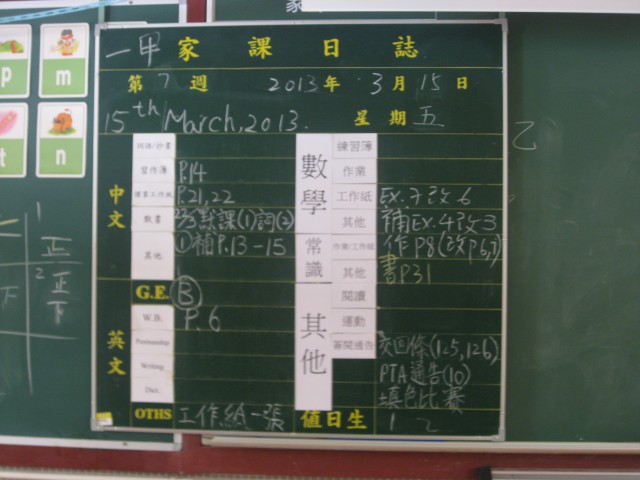 一甲家課日誌
第7週 2013年3月15日
15th March, 2013. 星期五
中文
習作簿 P.14
P.21,22
默書 默課(1)詞(2)
其他 ①補P.13-15
英文
G.E. Ⓑ
W.B. P.6
Penmanship
Writing
Dict.
OTHS 工作紙一張
數學
練習簿
作業
工作紙 Ex.7改6
其他 補Ex.4改3
常識
作業/工作紙 作P8(改P6,7)
其他 書P31
其他
閱讀
運動
簽閱通告 交回條(125,126)
PTA通告(10)
填色比賽
值日生 1 2
p
m
t
n
乙
1
正
2
正
下
下